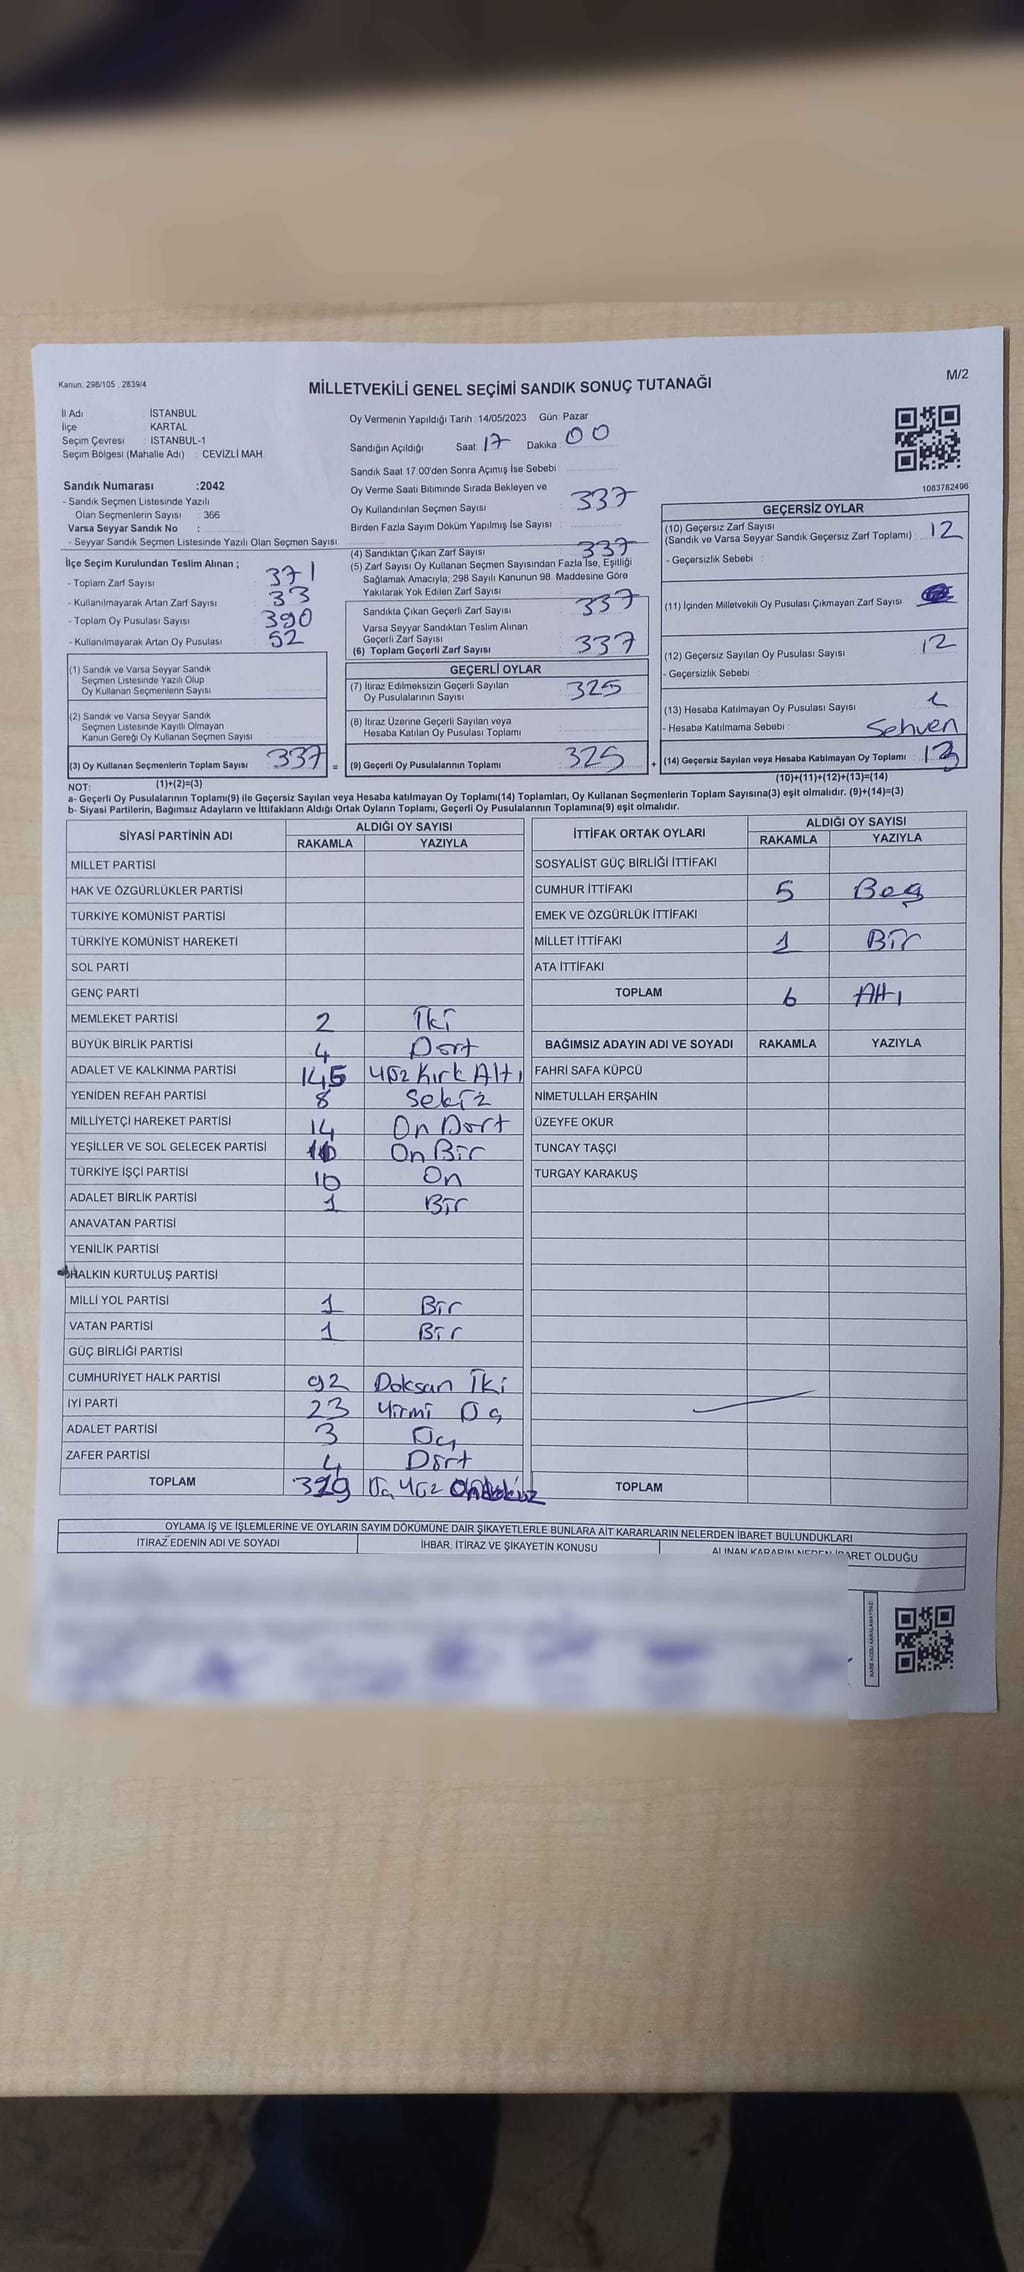 Kanun, 298/105 , 2839/4
M/2
MİLLETVEKİLİ GENEL SEÇİMİ SANDIK SONUÇ TUTANAĞI
İl Adı İSTANBUL
İlçe KARTAL
Seçim Çevresi : İSTANBUL-1
Seçim Bölgesi (Mahalle Adı) : CEVİZLİ MAH
Oy Vermenin Yapıldığı Tarih :14/05/2023 Gün: Pazar
Sandığın Açıldığı Saat: 17 Dakika: 00
Sandık Saat 17:00'den Sonra Açımış İse Sebebi :
Sandık Numarası :2042
- Sandık Seçmen Listesinde Yazılı
Olan Seçmenlerin Sayısı : 366
Varsa Seyyar Sandık No :
- Seyyar Sandık Seçmen Listesinde Yazılı Olan Seçmen Sayısı:
Oy Verme Saati Bitiminde Sırada Bekleyen ve
Oy Kullandırılan Seçmen Sayısı 337
Birden Fazla Sayım Döküm Yapılmış İse Sayısı
İlçe Seçim Kurulundan Teslim Alınan ;
- Toplam Zarf Sayısı 371
- Kullanılmayarak Artan Zarf Sayısı 33
- Toplam Oy Pusulası Sayısı 390
- Kullanılmayarak Artan Oy Pusulası 52
(1) Sandık ve Varsa Seyyar Sandık
Seçmen Listesinde Yazılı Olup
Oy Kullanan Seçmenlerin Sayısı
(2) Sandık ve Varsa Seyyar Sandık
Seçmen Listesinde Kayıtlı Olmayan
Kanun Gereği Oy Kullanan Seçmen Sayısı
(3) Oy Kullanan Seçmenlerin Toplam Sayısı 337 =
(1)+(2)=(3)
(4) Sandıktan Çıkan Zarf Sayısı 337
(5) Zarf Sayısı Oy Kullanan Seçmen Sayısından Fazla İse, Eşitliği
Sağlamak Amacıyla, 298 Sayılı Kanunun 98. Maddesine Göre
Yakılarak Yok Edilen Zarf Sayısı
Sandıkta Çıkan Geçerli Zarf Sayısı 337
Varsa Seyyar Sandıktan Teslim Alınan
Geçerli Zarf Sayısı
(6) Toplam Geçerli Zarf Sayısı 337
GEÇERLİ OYLAR
(7) İtiraz Edilmeksizin Geçerli Sayılan
Oy Pusulalarının Sayısı 325
(8) İtiraz Üzerine Geçerli Sayılan veya
Hesaba Katılan Oy Pusulası Toplamı
(9) Geçerli Oy Pusulalarının Toplamı 325 +
1083762496
GEÇERSİZ OYLAR
(10) Geçersiz Zarf Sayısı
(Sandık ve Varsa Seyyar Sandık Geçersiz Zarf Toplamı) : 12
- Geçersizlik Sebebi :
(11) İçinden Milletvekili Oy Pusulası Çıkmayan Zarf Sayısı
(12) Geçersiz Sayılan Oy Pusulası Sayısı 12
- Geçersizlik Sebebi
(13) Hesaba Katılmayan Oy Pusulası Sayısı :
- Hesaba Katılmama Sebebi : Sehven
(14) Geçersiz Sayılan veya Hesaba Katılmayan Oy Toplamı :
(10)+(11)+(12)+(13)=(14)
NOT:
a- Geçerli Oy Pusulalarının Toplamı(9) ile Geçersiz Sayılan veya Hesaba katılmayan Oy Toplamı(14) Toplamları, Oy Kullanan Seçmenlerin Toplam Sayısına(3) eşit olmalıdır. (9)+(14)=(3)
b- Siyasi Partilerin, Bağımsız Adayların ve İttifakların Aldığı Ortak Oyların Toplamı, Geçerli Oy Pusulalarının Toplamına(9) eşit olmalıdır.
SİYASİ PARTİNİN ADI ALDIĞI OY SAYISI
RAKAMLA YAZIYLA
MİLLET PARTİSİ
HAK VE ÖZGÜRLÜKLER PARTİSİ
TÜRKİYE KOMÜNİST PARTİSİ
TÜRKİYE KOMÜNİST HAREKETİ
SOL PARTİ
GENÇ PARTİ
MEMLEKET PARTİSİ 2 İki
BÜYÜK BİRLİK PARTİSİ 4 Dört
ADALET VE KALKINMA PARTİSİ 145 yüz Kırk Altı
YENİDEN REFAH PARTİSİ 8 Sekiz
MİLLİYETÇİ HAREKET PARTİSİ 14 On Dört
YEŞİLLER VE SOL GELECEK PARTİSİ On Bir
TÜRKİYE İŞÇİ PARTİSİ 10 On
ADALET BİRLİK PARTİSİ 1 Bir
ANAVATAN PARTİSİ
YENİLİK PARTİSİ
HALKIN KURTULUŞ PARTİSİ
MİLLİ YOL PARTİSİ 1 Bir
VATAN PARTİSİ 1 Bir
GÜÇ BİRLİĞİ PARTİSİ
CUMHURİYET HALK PARTİSİ 92 Doksan İki
İYİ PARTİ 23 Yirmi Üç
ADALET PARTİSİ 3 Üç
ZAFER PARTİSİ 4 Dört
TOPLAM 319 Üç yüz
İTTİFAK ORTAK OYLARI ALDIĞI OY SAYISI
RAKAMLA YAZIYLA
SOSYALİST GÜÇ BİRLİĞİ İTTİFAKI
CUMHUR İTTİFAKI 5 Beş
EMEK VE ÖZGÜRLÜK İTTİFAKI
MİLLET İTTİFAKI 1 Bir
ATA İTTİFAKI
TOPLAM 6 Altı
BAĞIMSIZ ADAYIN ADI VE SOYADI RAKAMLA YAZIYLA
FAHRİ SAFA KÜPCÜ
NİMETULLAH ERŞAHİN
ÜZEYFE OKUR
TUNCAY TAŞÇI
TURGAY KARAKUŞ
TOPLAM
OYLAMA İŞ VE İŞLEMLERİNE VE OYLARIN SAYIM DÖKÜMÜNE DAİR ŞİKAYETLERLE BUNLARA AİT KARARLARIN NELERDEN İBARET BULUNDUKLARI
İTİRAZ EDENİN ADI VE SOYADI İHBAR, İTİRAZ VE ŞİKAYETİN KONUSU ALINAN KARARIN NEDEN İBARET OLDUĞU
KARE KODU KARALAMAYINIZ!